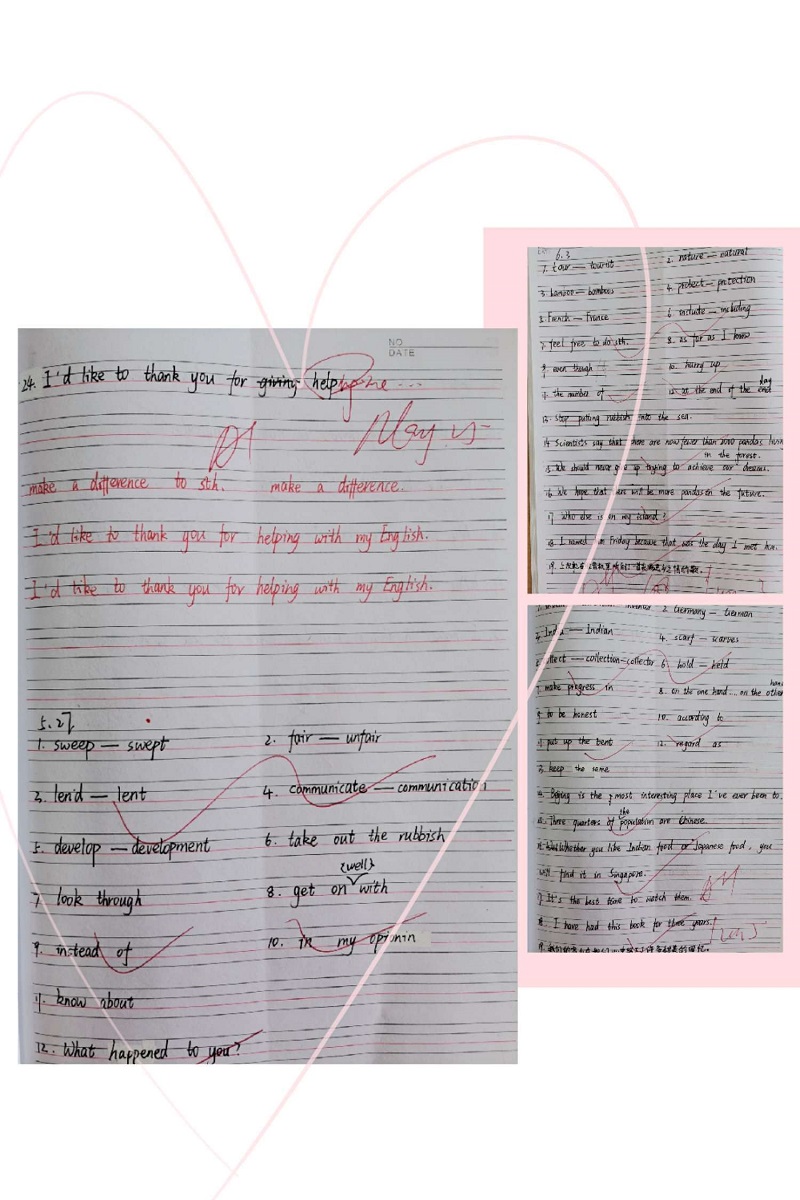 NO
DATE
24. I'd like to thank you for giving helping me ...
A
May 25
make a difference to sth. make a difference.
I'd like to thank you for helping with my English.
I'd like to thank you for helping with my English.
5.27
1. sweep — swept 2. fair — unfair
3. lend — lent 4. communicate — communication
5. develop — development 6. take out the rubbish
7. look through 8. get on (well) with
9. instead of 10. in my opinin
11. know about
12. What happened to you?
6.3
1. tour — tourist 2. nature — natural
3. bamboo — bamboos 4. protect — protection
5. French — France 6. include — including
7. feel free to do sth. 8. as far as I know
9. even though 10. hurry up
11. the number of 12. at the end of the day
13. stop putting rubbish into the sea.
14. Scientists say that there are now fewer than 2000 pandas living
in the forest.
15. We should never give up trying to achieve our dreams.
16. We hope that there will be more pandas in the future.
17. Who else is on my island?
18. I named him Friday because that was the day I met him.
2. Germany — German
3. India — Indian 4. scarf — scarves
5. collect — collection — collector 6. hold — held
7. make progress in 8. on the one hand ... on the other hand
9. to be honest 10. according to
11. put up the tent 12. regard as
13. keep the same
14. Beijing is the most interesting place I've ever been to.
15. Three quarters of the population are Chinese.
16. Whether you like Indian food or Japanese food, you
will find it in Singapore.
17. It's the best time to watch them.
18. I have had this book for three years.